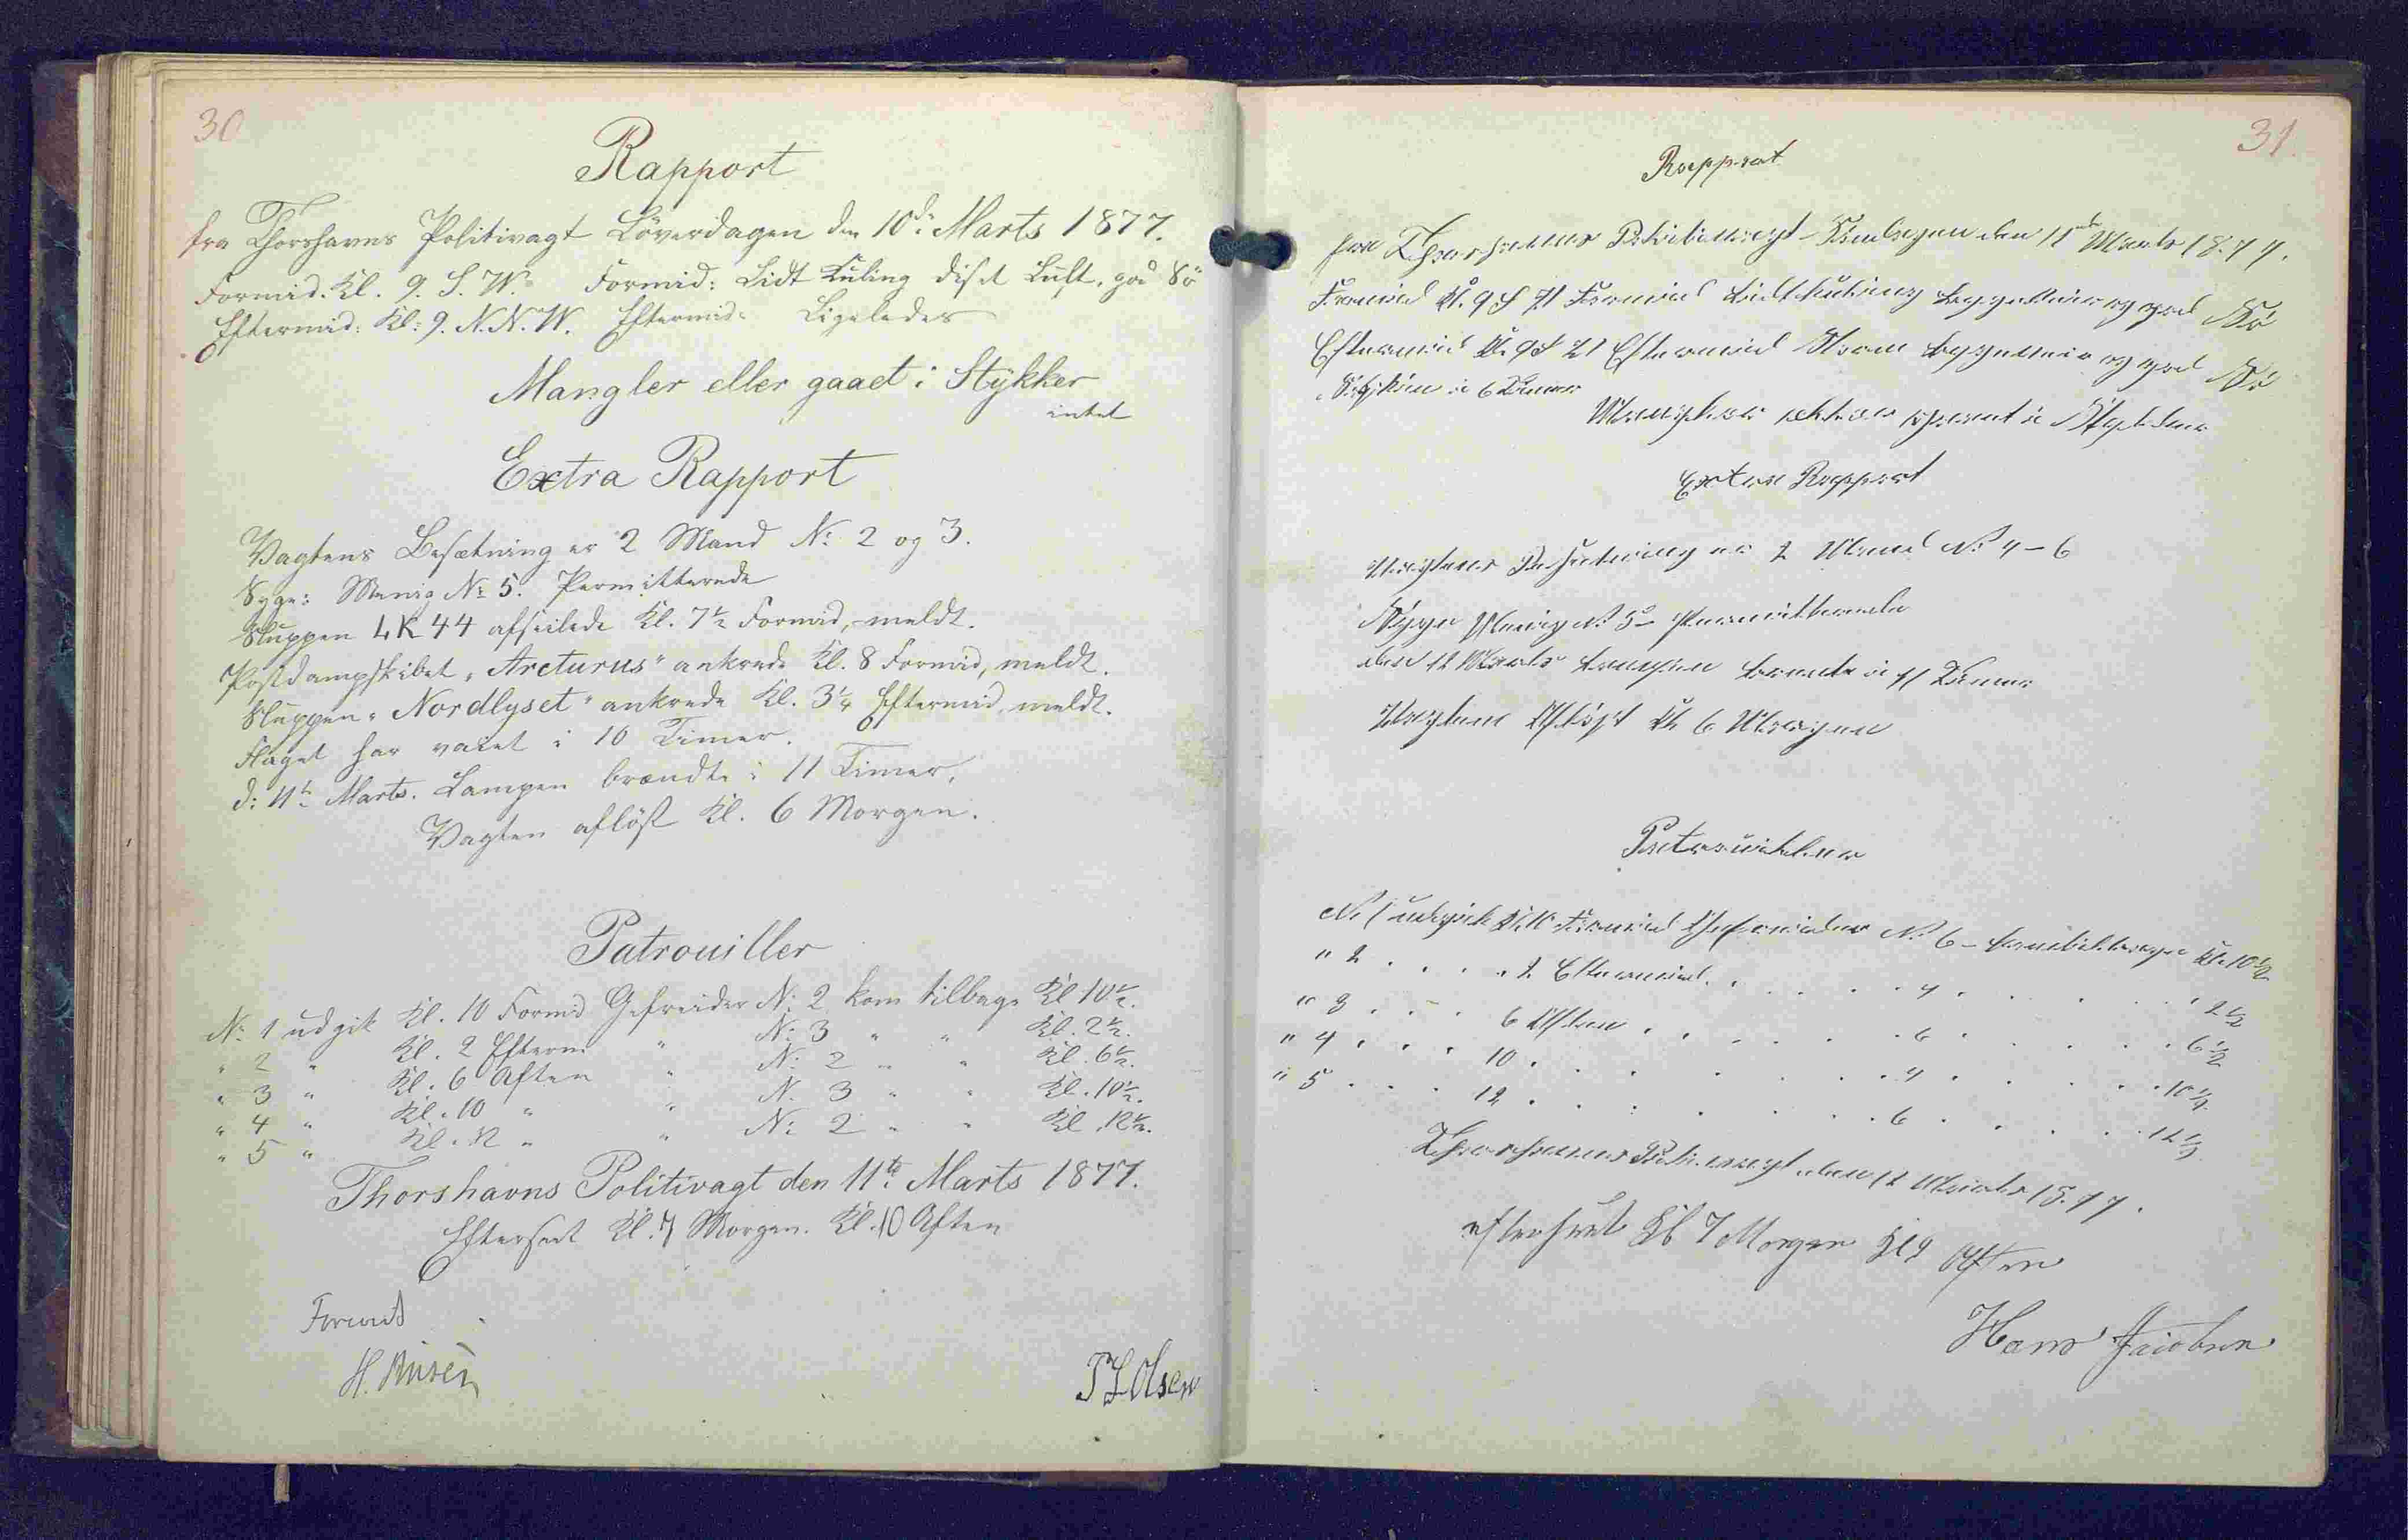 30
Rapport
fra Thorshavns Politivagt Löverdagen den 10de Marts 1877.
Formid. Kl. 9. S. W. Formid: Lidt Kuling diset Luft, god Sö
Eftermid: Kl: 9. N.N.W. Eftermid: Ligeledes
Mangler eller gaaet i Stykker
intet
Extra Rapport
Vagtens Besætning er 2 Mand No 2 og 3.
Syge: Menig No 5. Permitterede
Sluppen LK 44 afseilede Kl. 7½ Formid, meldt.
Postdampskibet "Arcturus" ankrede Kl. 8 Formid, meldt.
Sluppen "Nordlyset" ankrede Kl. 3¼ Eftermid, meldt.
Flaget har vaiet i 10 Timer.
d: 11te Marts. Lampen brændte i 11 Timer,
Vagten aflöst Kl. 6 Morgen.
Patrouiller
No 1 udgik Kl. 10 Formid Gefreider No 2 kom tilbage Kl 10½.
" 2 " Kl. 2 Efterm " No 3 " " Kl. 2½.
" 3 " Kl. 6 Aften " No 2 " " Kl. 6½.
" 4 " Kl. 10 " " No 3 " " Kl. 10½.
" 5 " Kl. 12 " " No 2 " " Kl. 12½.
Thorshavns Politivagt den 11te Marts 1877.
Efterseet Kl. 7 Morgen. Kl. 10 Aften
H.
Olsen
31
Rapport
fra Thorshavns Politivagt Söndagen den 11te Marts 1877.
Formid Kl. 9 S Formid Lidt Kuling og god Sö
Eftermid Kl. 9 S Eftermid og god Sö
i 6 Timer
Mangler eller gaaet i Stykker
Extra Rapport
Vagtens Besætning er 2 Mand No 4 - 6
Syge Menig No 5 - Permitterede
den 12 Marts Lampen brændte i 11 Timer
Vagten Aflöst Kl. 6 Morgen
Patrouiller
No 1 udgik Kl. 10 Formid Gefreider No 6 - kom tilbage Kl. 10½
" 2 . . . . 2 Eftermid . . . . . 4 . . . . . 2½
" 3 . . . 6 Aften . . . . . 6 . . . . . 6½
" 4 . . . 10 . . . . . 4 . . . . . 10½
" 5 . . . 12 . . . . . 6 . . . . . 12½
Thorshavns Politivagt den 12 Marts 1877.
efterseet Kl 7 Morgen Kl 9 Aften
Hans Jacobsen